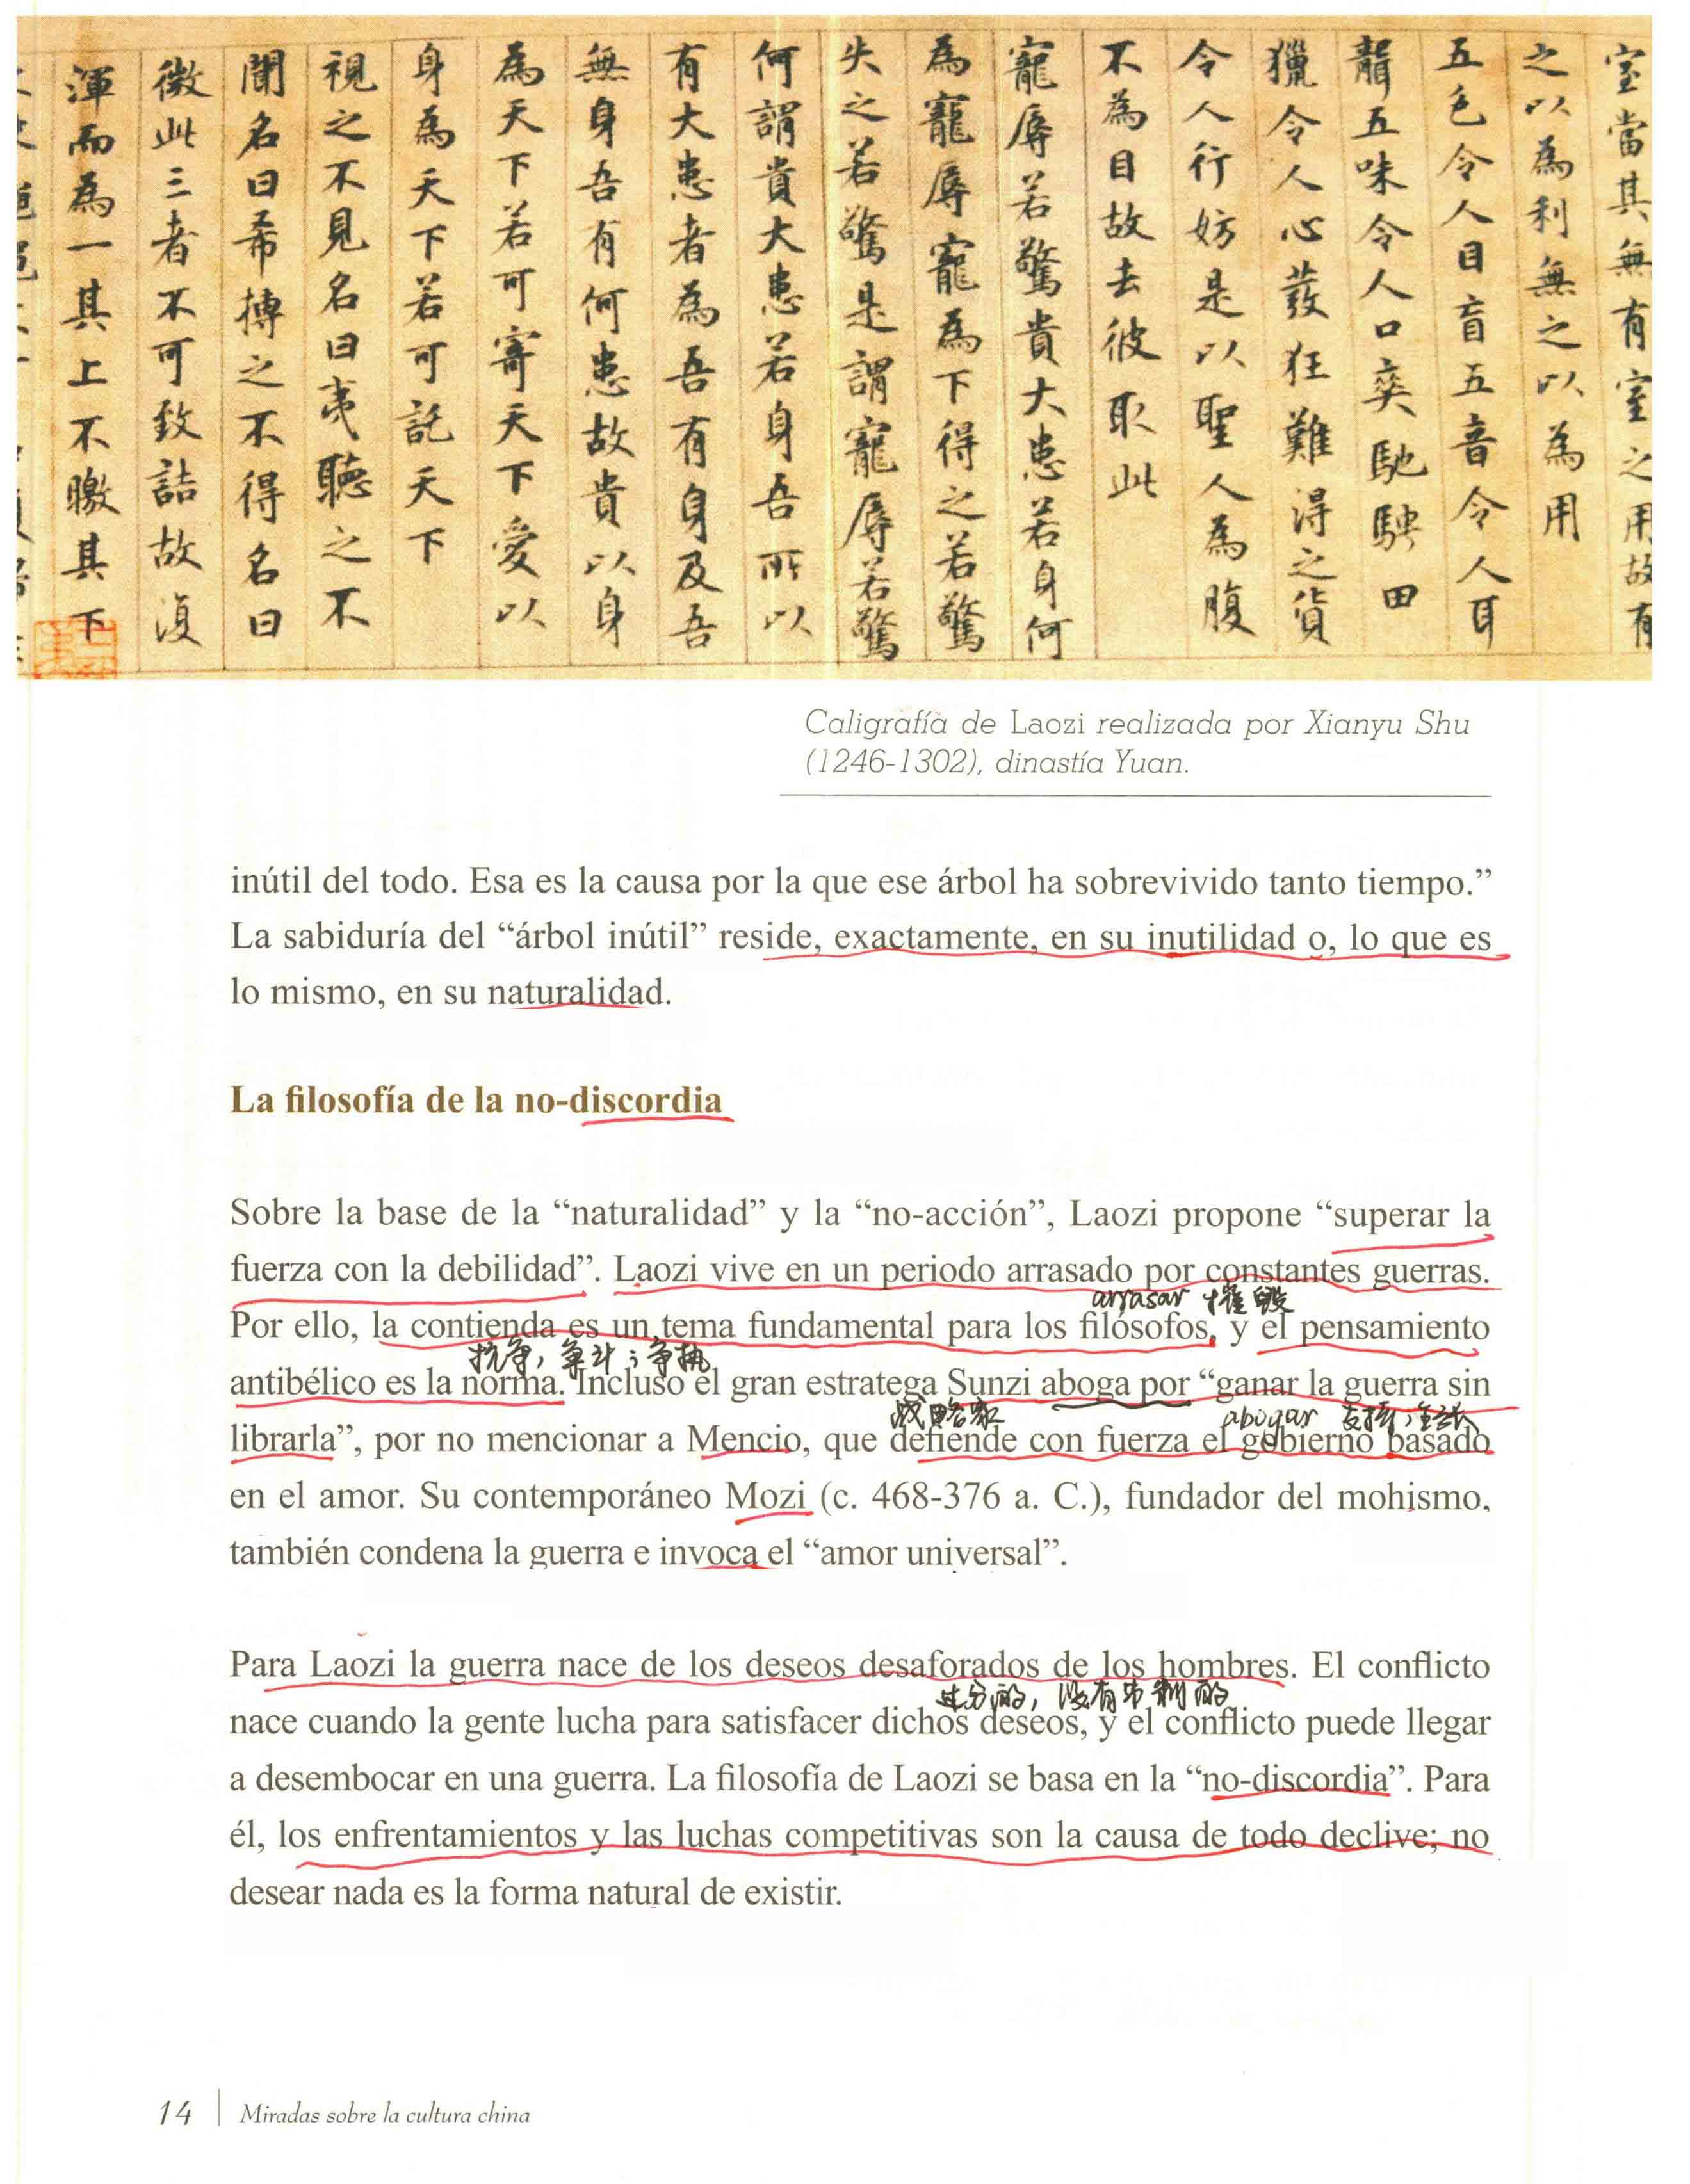 室當其無有室之用故有
之以為利無之以為用
五色令人目盲五音令人耳
聾五味令人口爽馳騁田
獵令人心發狂難得之貨
令人行妨是以聖人為腹
不為目故去彼取此
寵辱若驚貴大患若身何
為寵辱寵為下得之若驚
失之若驚是謂寵辱若驚
何謂貴大患若身吾所以
有大患者為吾有身及吾
無身吾有何患故貴以身
為天下若可寄天下愛以
身為天下若可託天下
視之不見名曰夷聽之不
聞名曰希搏之不得名曰
微此三者不可致詰故復
渾而為一其上不曒其下
Caligrafía de Laozi realizada por Xianyu Shu
(1246-1302), dinastía Yuan.
inútil del todo. Esa es la causa por la que ese árbol ha sobrevivido tanto tiempo.”
La sabiduría del “árbol inútil” reside, exactamente, en su inutilidad o, lo que es
lo mismo, en su naturalidad.
La filosofía de la no-discordia
Sobre la base de la “naturalidad” y la “no-acción”, Laozi propone “superar la
fuerza con la debilidad”. Laozi vive en un periodo arrasado por constantes guerras.
arrasar 摧毁
Por ello, la contienda es un tema fundamental para los filósofos, y el pensamiento
抗争，争斗；争执
antibélico es la norma. Incluso el gran estratega Sunzi aboga por “ganar la guerra sin
战略家 abogar 支持，主张
librarla”, por no mencionar a Mencio, que defiende con fuerza el gobierno basado
en el amor. Su contemporáneo Mozi (c. 468-376 a. C.), fundador del mohismo,
también condena la guerra e invoca el “amor universal”.
Para Laozi la guerra nace de los deseos desaforados de los hombres. El conflicto
过分的，没有节制的
nace cuando la gente lucha para satisfacer dichos deseos, y el conflicto puede llegar
a desembocar en una guerra. La filosofía de Laozi se basa en la “no-discordia”. Para
él, los enfrentamientos y las luchas competitivas son la causa de todo declive; no
desear nada es la forma natural de existir.
14 Miradas sobre la cultura china